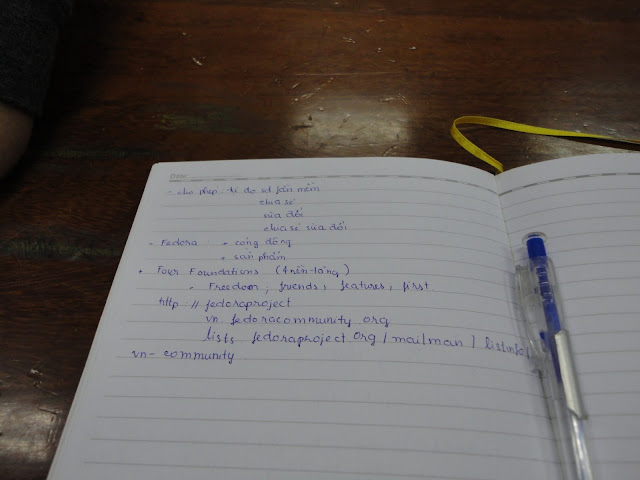 Date
- cho phép : tự do sd phần mềm
chia sẻ
sửa đổi
chia sẻ sửa đổi
- Fedora : + cộng đồng
+ sản phẩm
+ Four Foundations (4 nền-tảng)
Freedom, friends, features, first
http // fedoraproject
vn. fedoracommunity org
lists fedoraproject org / mailman / listinfo/
vn- community